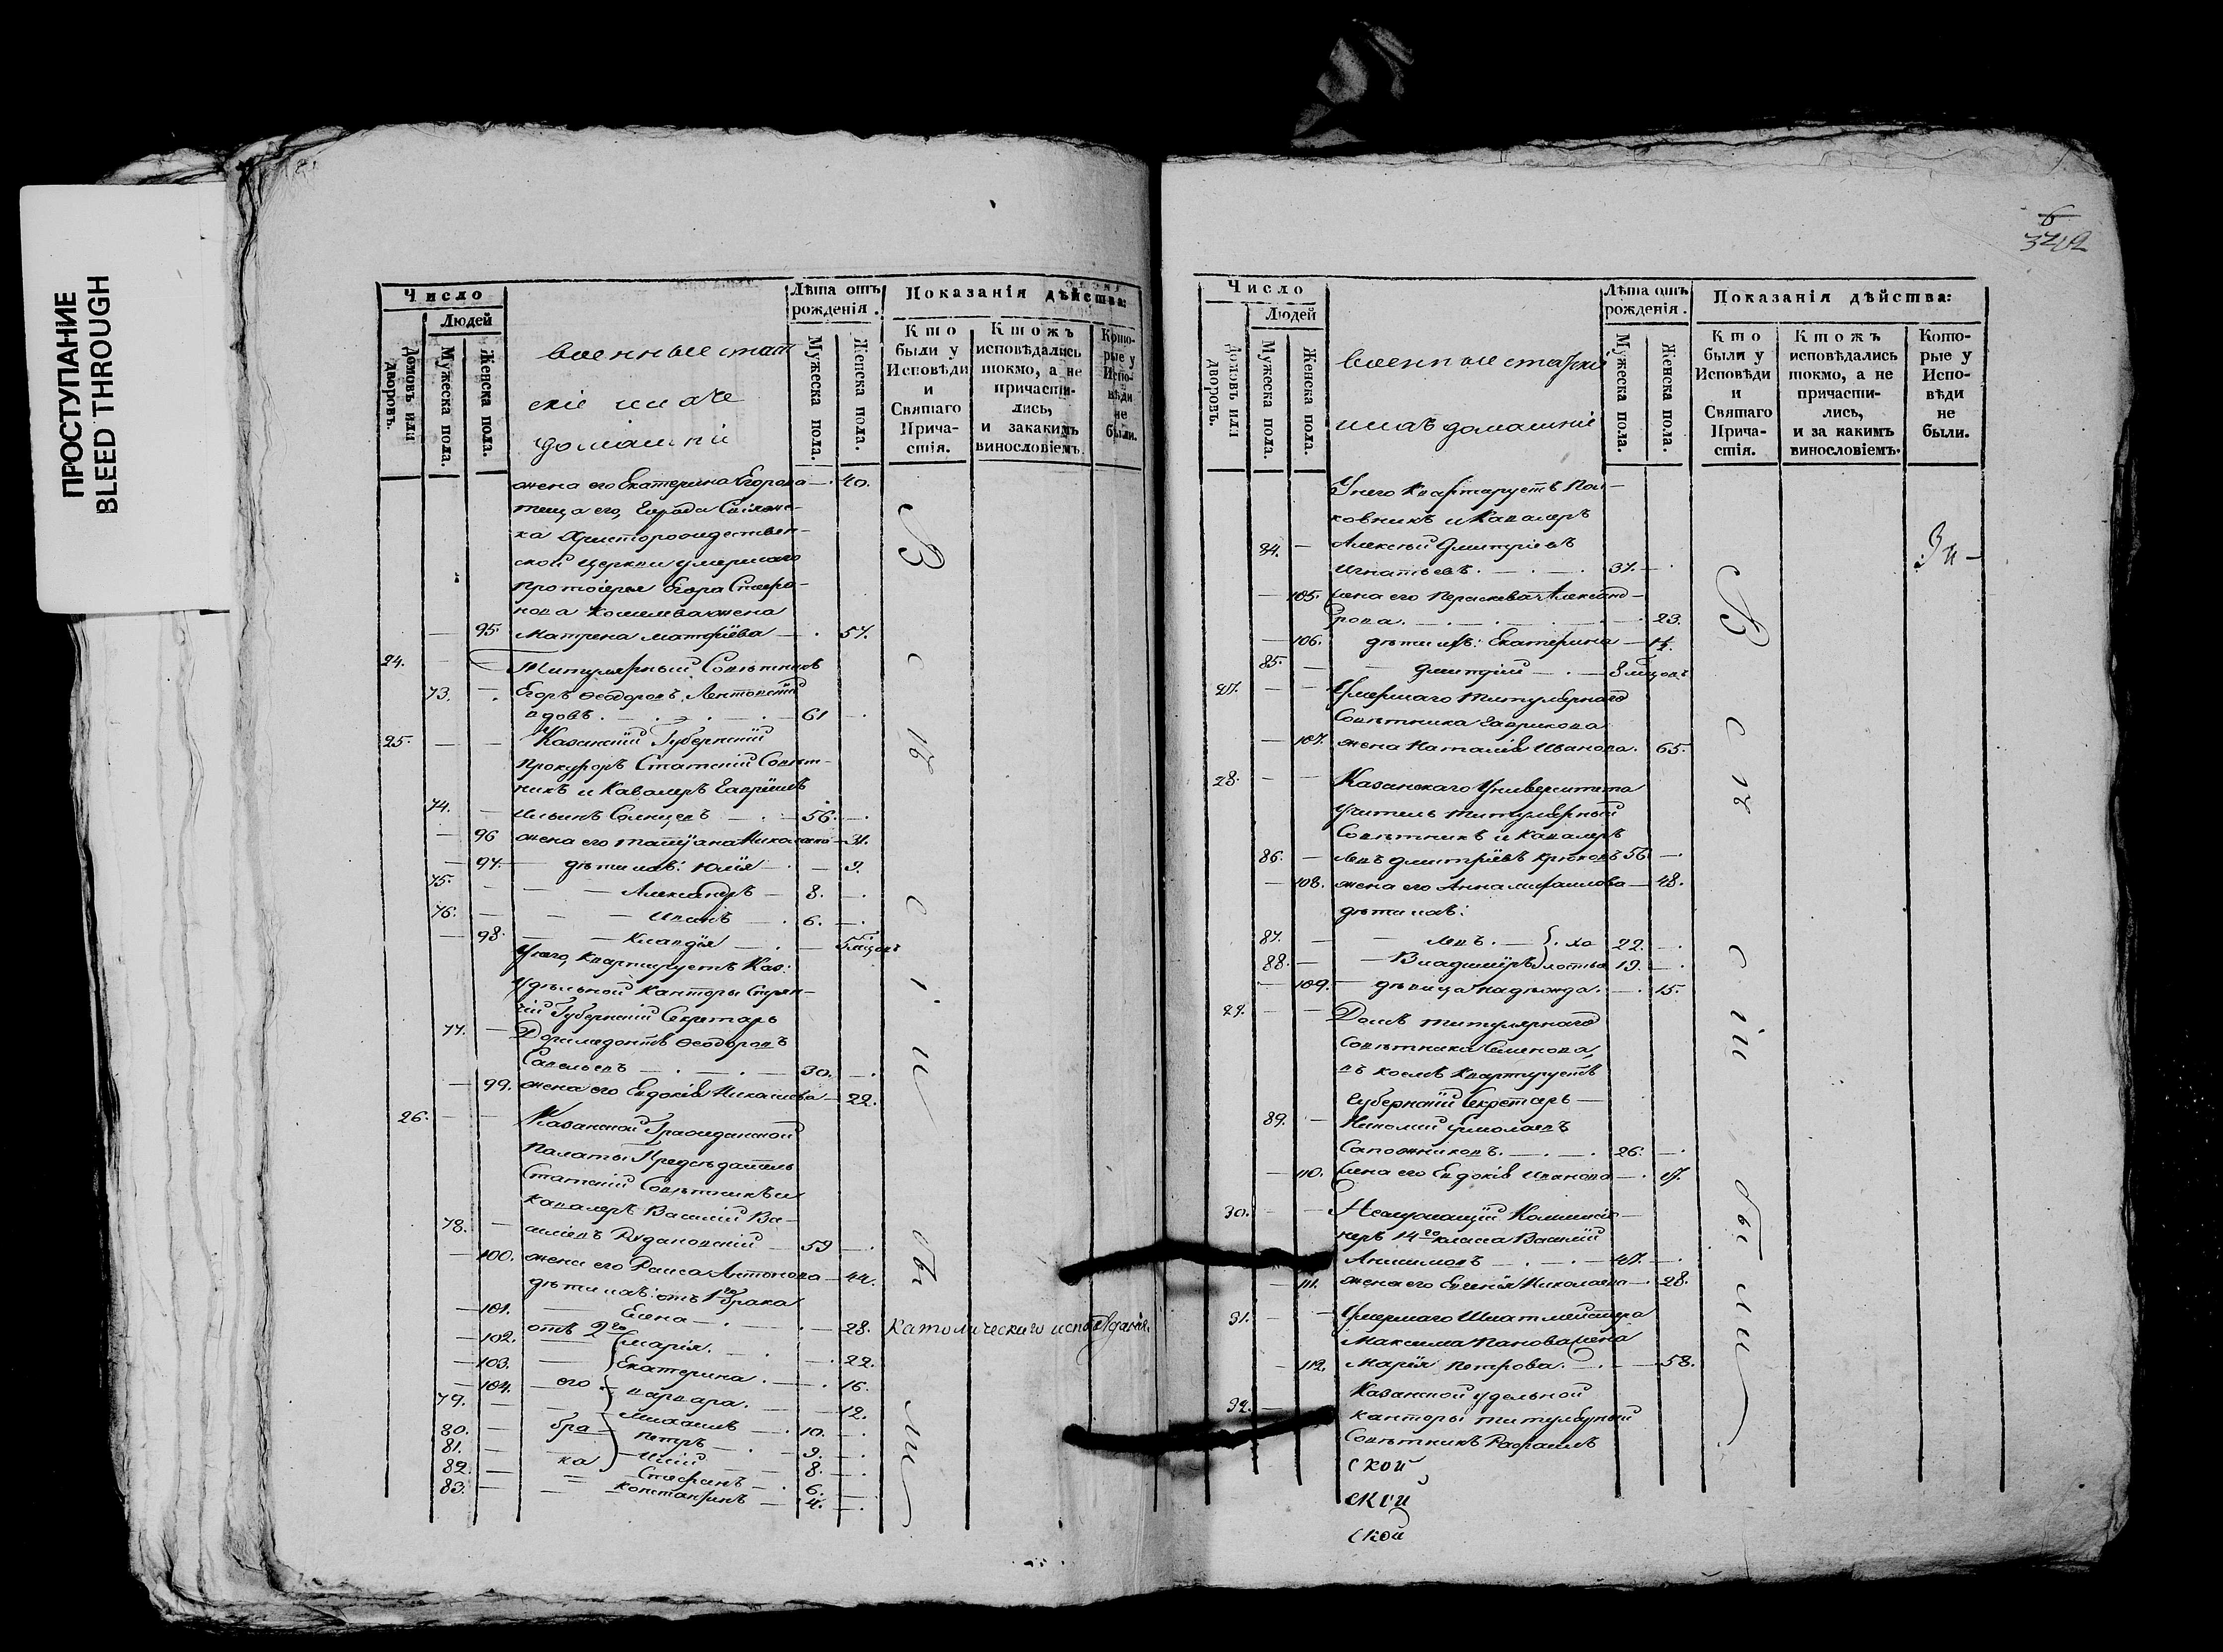 ПРОСТУПАНИЕ
BLEED THROUGH
Число
Людей
Домовъ или дворовъ.
Мужеска пола.
Женска пола.
военные стат
скіе и ихъ
домашніе
Лѣта отъ рожденія.
Мужеска пола.
Женска пола.
Показанія дѣйства:
Кто были у Исповѣди и Святаго Причастія.
Ктожъ исповѣдались токмо, а не причастились, и закакимъ винословіемъ.
Которые у Исповѣди не были.
жена его Екатерина Егорова — 40.
теща его, Города
ка Христорождествен-
ской церкви умершаго
протоіерея Егора Стефа-
нова жена
95. Матрена Матфіева — 57.
24. Титулярный Совѣтникъ
73. Егоръ Ѳеодоровъ
вдовъ. 61
25. Казанскій Губернскій
Прокуроръ Статскій Совѣт-
никъ и Кавалеръ Гавріилъ
74. Ильинъ Солнцевъ — 56.
96 жена его Татіана Николаева — 31.
97. дѣти ихъ: Юлія — 9.
75. Александръ — 8.
76. Иванъ — 6.
98. Клавдія — 5 мѣцовъ
У него, квартируетъ Каз:
Удѣльной Конторы Стряп-
чій Губернскій Секретарь
77. Доримедонтъ Ѳеодоровъ
Савельевъ — 30.
99. жена его Евдокія — 22.
26. Казанской Гражданской
Палаты Предсѣдатель
Статскій Совѣтникъ и
Кавалеръ Василій Ва-
78. сильевъ — 53
100. жена его Раиса Антонова — 44.
дѣти ихъ: отъ 1го брака
101. Елена — 28. Католическаго исповѣданія.
отъ 2го
102. Марія. — 22.
103. Екатерина. — 16.
104. его Варвара. — 12.
79. Михаилъ — 10.
80. бра Петръ — 9.
81. ка — 8.
82. Стефанъ — 6.
83. Константинъ — 4.
Всѣ сіи были
6
Число
Людей
Домовъ или дворовъ.
Мужеска пола.
Женска пола.
военные статскіе
и ихъ домашніе
Лѣта отъ рожденія.
Мужеска пола.
Женска пола.
Показанія дѣйства:
Кто были у Исповѣди и Святаго Причастія.
Ктожъ исповѣдались токмо, а не причастились, и за какимъ винословіемъ.
Которые у Исповѣди не были.
У него квартируетъ Пол-
ковникъ и Кавалеръ
84. Алексѣй Дмитріевъ
Игнатьевъ. 37.
105. жена его Параскева Александ-
рова. 23.
106. дѣти ихъ: Екатерина — 1½.
85. Дмитрій — 8 мѣцовъ
27. Умершаго Титулярнаго
Совѣтника Гаврилова
107. жена Наталія Иванова. 65.
28. Казанскаго Университета
Учитель Титулярный
Совѣтникъ и Кавалеръ
86. Левъ Дмитріевъ Крюковъ 56.
108. жена его Анна Михаилова — 48.
дѣти ихъ:
87. Левъ. — хо 22.
88. Владиміръ лостые 19.
109. дѣвица Надежда. 15.
29. Домъ Титулярнаго
Совѣтника Семенова,
въ коемъ квартируетъ
Губернскій Секретарь —
89. Ермолаевъ
Сапожниковъ. 26.
110. жена его Евдокія Иванова — 17.
30. Неслужащій Коммисіо-
неръ 14го класса Василій
Анисимовъ — 47.
111. жена его Евгенія Николаева — 28.
31. Умершаго Штатмейстера
Максима Панова жена
112. Марія Петрова. 58.
32. Казанской удельной
Канторы титулярный
Совѣтникъ Рафаилъ
ской
ской
ской
Всѣ сіи были